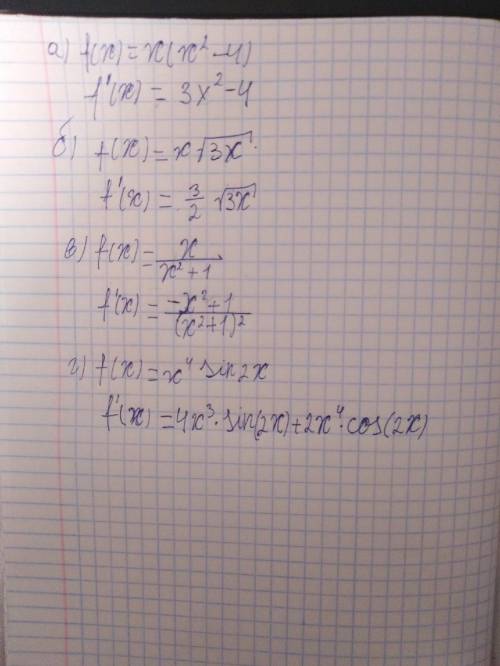 а) f(x) = x(x² - 4)
f'(x) = 3x² - 4
б) f(x) = x√3x
f'(x) = 3/2 √3x
в) f(x) = x/(x² + 1)
f'(x) = (-x² + 1)/(x² + 1)²
г) f(x) = x⁴ sin2x
f'(x) = 4x³ · sin(2x) + 2x⁴ · cos(2x)